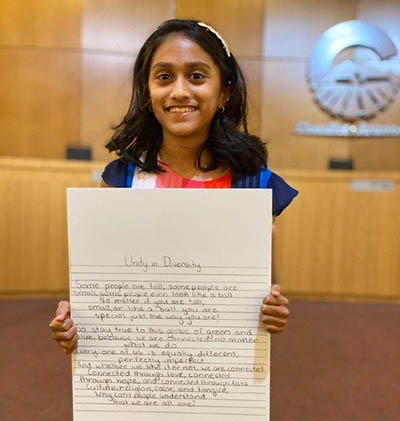 Unity in Diversity
Some people are tall, some people are
small, some people even look like a ball
No matter if you are tall,
small, or like a ball, you are
special just the way you are!
So stay true to this globe of green and
blue, because we are connected no matter
what we do
Every one of us is equally different,
perfectly imperfect
And whether we like it or not, we are connected
Connected through love, connected
through hope, and connected through fate
Culture, religion, color, and tongue,
Why can't people understand
That we are all one?